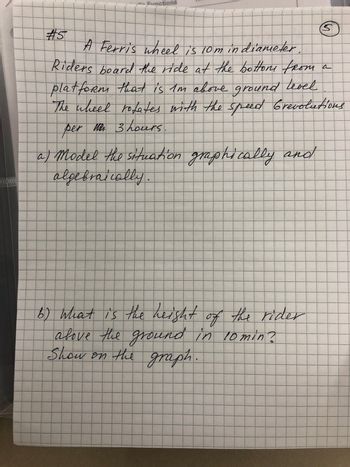 5
#5
A Ferris wheel is 10m in diameter.
Riders board the ride at the bottom from a
platform that is 1m above ground level
The wheel rotates with the speed 6 revolutions
per 3 hours.
a) Model the situation graphically and
algebraically.
b) What is the height of the rider
above the ground in 10 min?
Show on the graph.